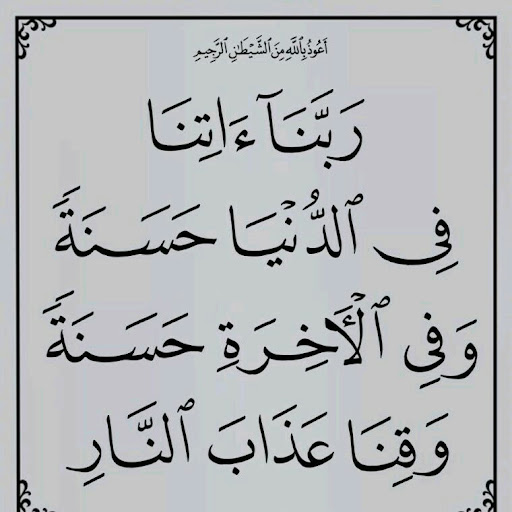 أَعُوذُ بِٱللَّهِ مِنَ ٱلشَّيْطَٰنِ ٱلرَّجِيمِ
رَبَّنَآ ءَاتِنَا
فِى ٱلدُّنْيَا حَسَنَةً
وَفِى ٱلْأَخِرَةِ حَسَنَةً
وَقِنَا عَذَابَ ٱلنَّارِ